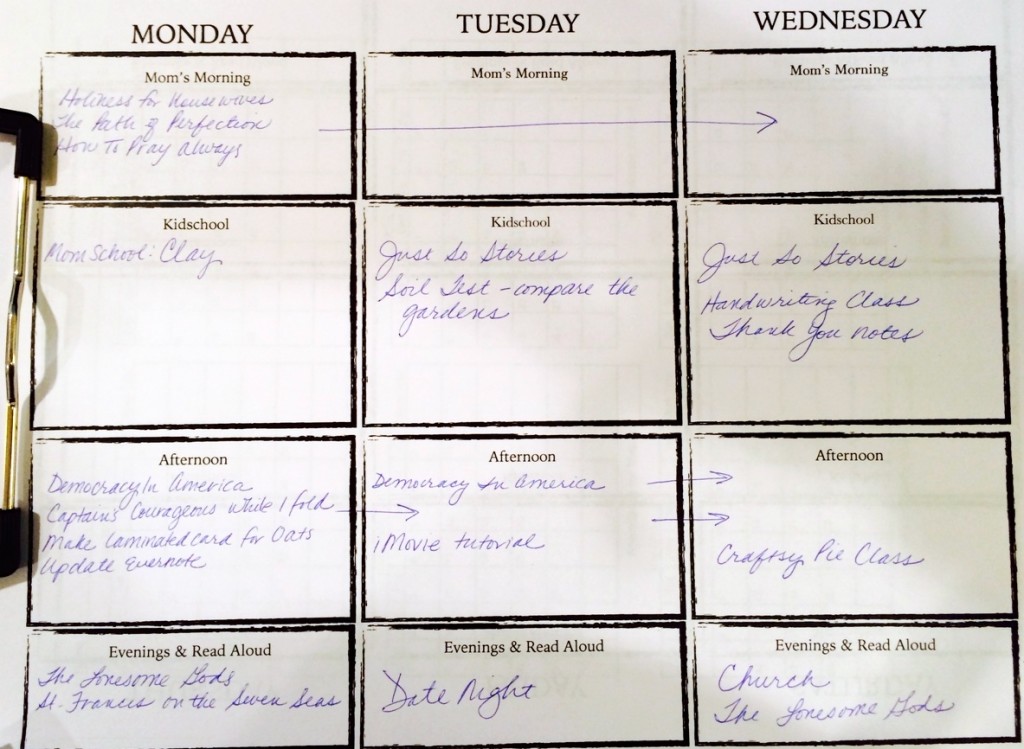 MONDAY
TUESDAY
WEDNESDAY
Mom's Morning
Holiness for Housewives
The Path of Perfection
How To Pray Always
Mom's Morning
Mom's Morning
Kidschool
Mom School: Clay
Kidschool
Just So Stories
Soil Test - compare the
gardens
Kidschool
Just So Stories
Handwriting Class
Thank you notes
Afternoon
Democracy In America
Captain's Courageous while I fold
Make laminated card for Oats
Update Evernote
Afternoon
Democracy In America
iMovie tutorial
Afternoon
Craftsy Pie Class
Evenings & Read Aloud
The Lonesome Gods
St. Francis on the Seven Seas
Evenings & Read Aloud
Date Night
Evenings & Read Aloud
Church
The Lonesome Gods